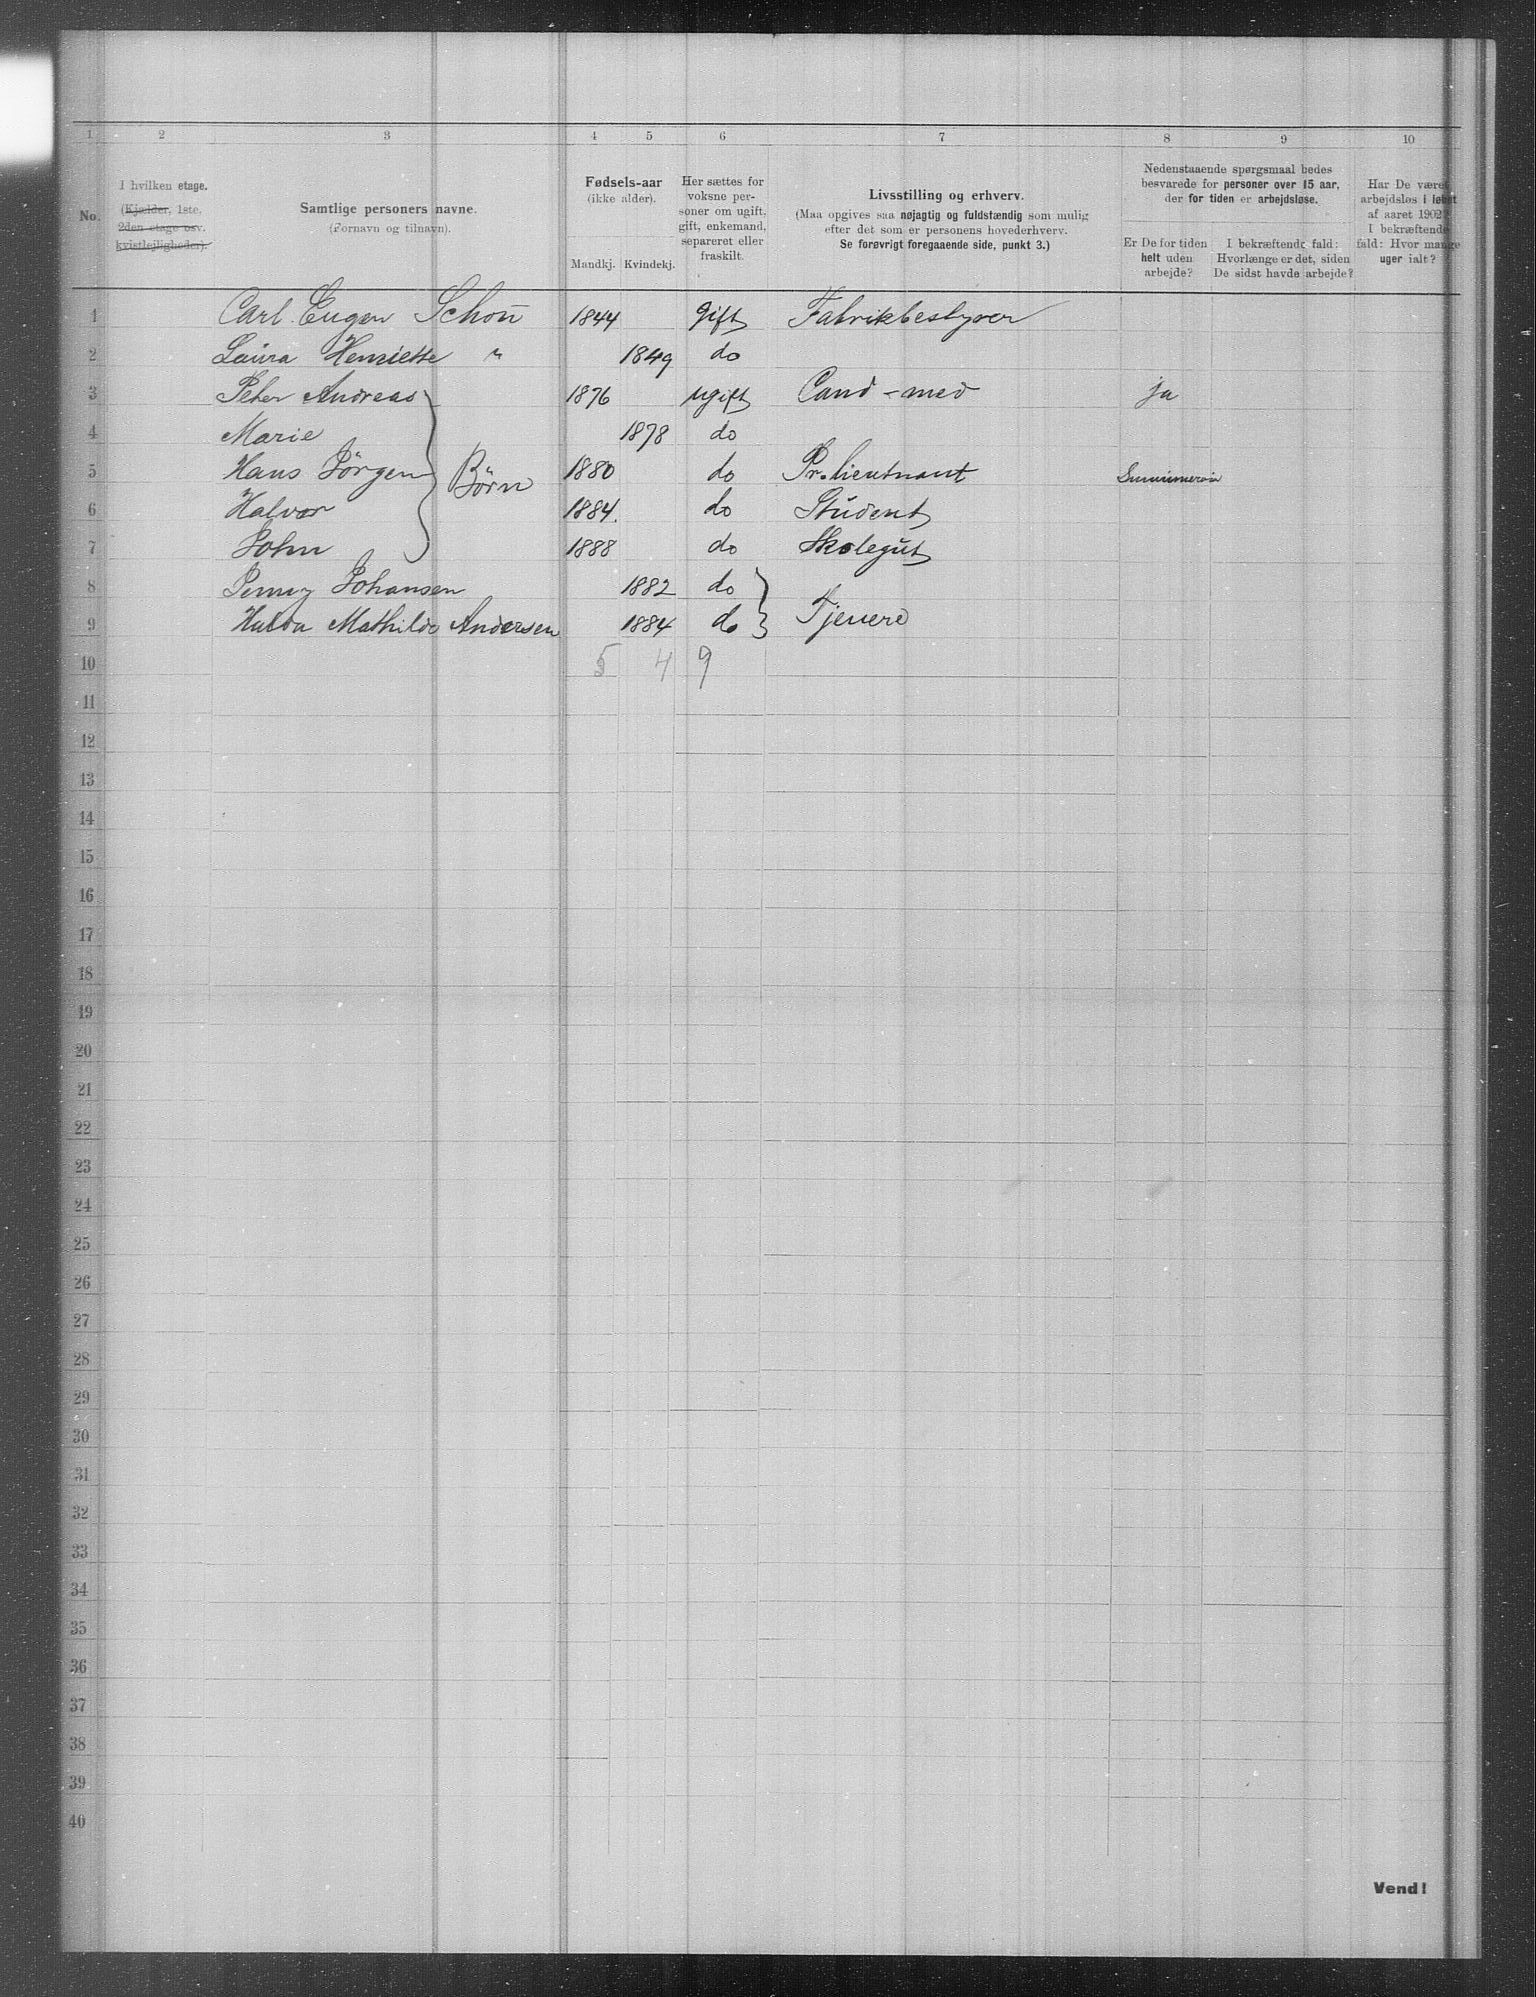 1 2 3 4 5 6 7 8 9 10
No.
I hvilken etage.
(Kjælder, 1ste,
2den etage osv.
kvistlejligheder).
Samtlige personers navne.
(Fornavn og tilnavn).
Fødsels-aar
(ikke alder).
Mandkj. Kvindekj.
Her sættes for
voksne per-
soner om ugift,
gift, enkemand,
separeret eller
fraskilt.
Livsstilling og erhverv.
(Maa opgives saa nøjagtig og fuldstændig som mulig
efter det som er personens hovederhverv.
Se forøvrigt foregaaende side, punkt 3.)
Nedenstaaende spørgsmaal bedes
besvarede for personer over 15 aar,
der for tiden er arbejdsløse.
Er De for tiden
helt uden
arbejde?
I bekræftende fald:
Hvorlænge er det, siden
De sidst havde arbejde?
Har De været
arbejdsløs i løbet
af aaret 1902?
I bekræftende
fald: Hvor mange
uger ialt?
1 Carl Eugen Schou 1844 gift Fabrikbestyrer
2 Laura Henriette " 1849 do
3 Peter Andreas 1876 ugift Cand-med ja
4 Marie 1878 do
5 Hans Jörgen Börn 1880 do Pr. lieutnant
6 Halvor 1884. do Student
7 John 1888 do Skolegut
8 Johansen 1882 do
9 Hulda Mathilde Andersen 1884 do Tjenere
10 5 4 9
11
12
13
14
15
16
17
18
19
20
21
22
23
24
25
26
27
28
29
30
31
32
33
34
35
36
37
38
39
40
Vend!